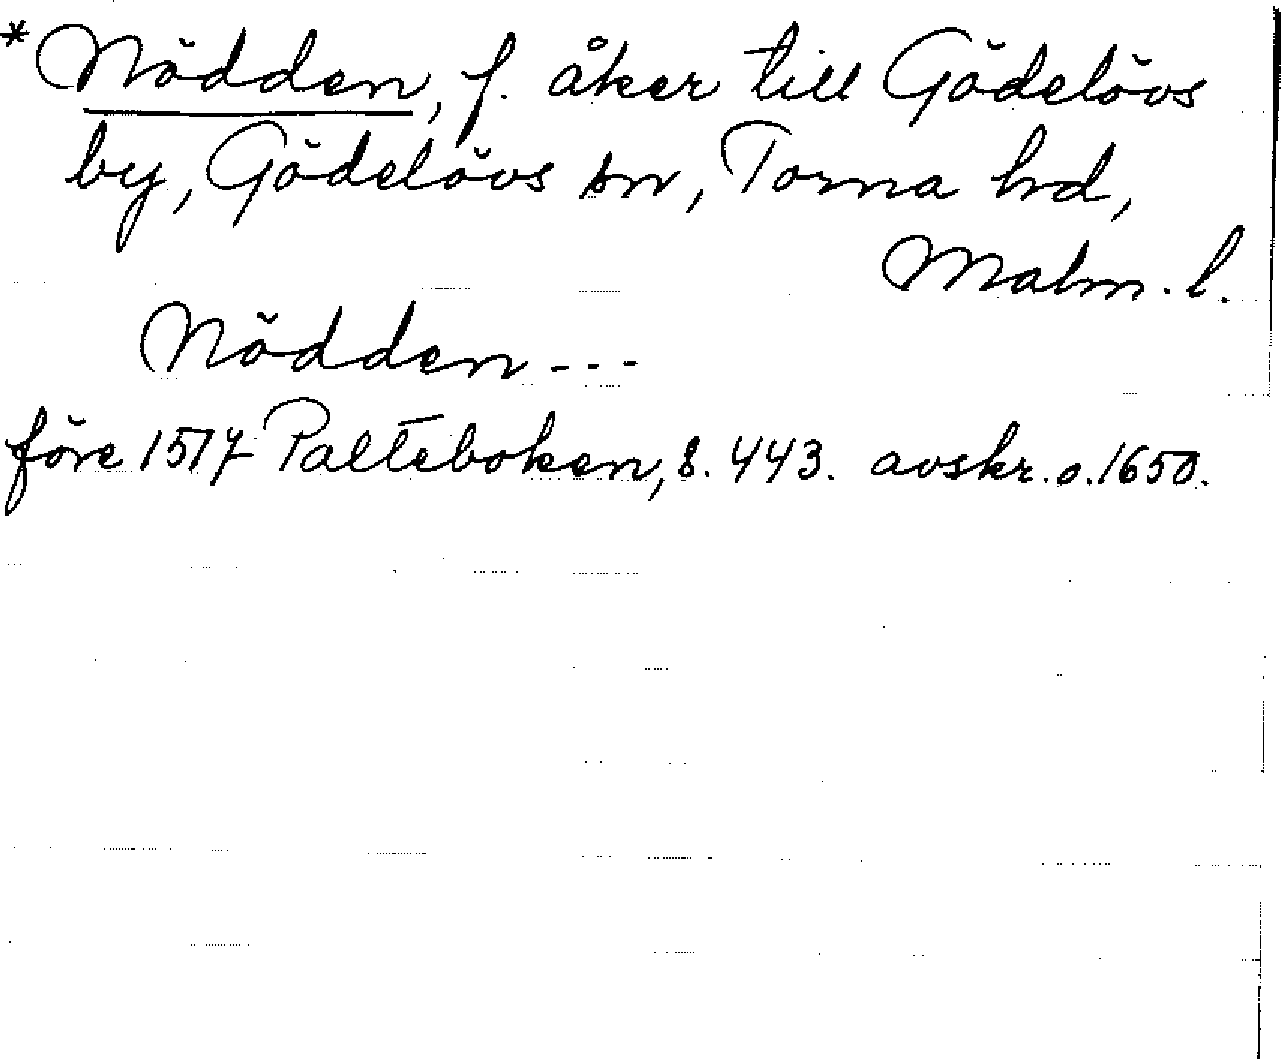 *Nödden, f. åker till Gödelövs
by, Gödelövs sn, Torna hd,
Malm. l.
Nödden---
före 1517 Palteboken, s. 443. avskr. o. 1650.